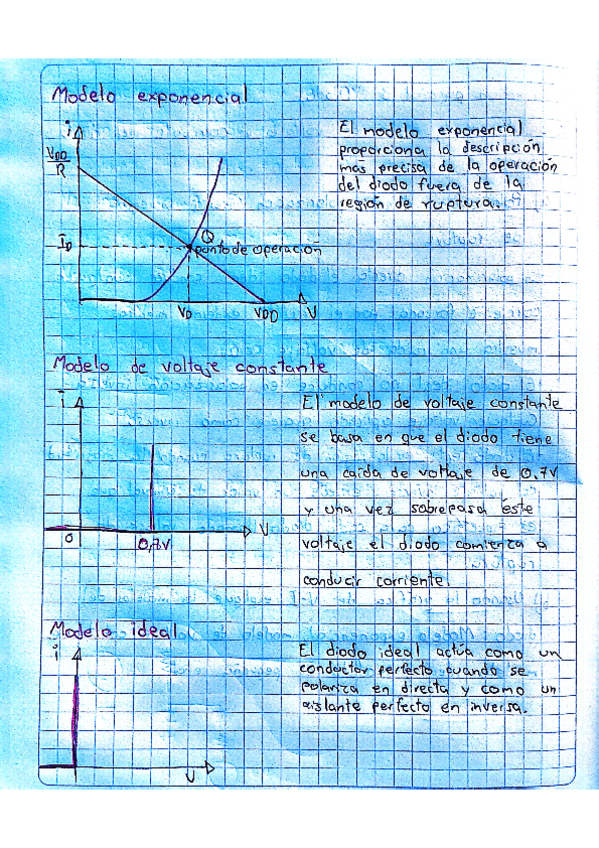 Modelo exponencial
i
VDD
R
ID
Q
punto de operación
VD
VDD
V
El modelo exponencial
proporciona la descripción
más precisa de la operación
del diodo fuera de la
región de ruptura.
Modelo de voltaje constante
I
0
0,7V
V
El modelo de voltaje constante
se basa en que el diodo tiene
una caída de voltaje de 0.7V
y una vez sobrepasa éste
voltaje el diodo comienza a
conducir corriente.
Modelo ideal
i
V
El diodo ideal actúa como un
conductor perfecto cuando se
polariza en directa y como un
aislante perfecto en inversa.